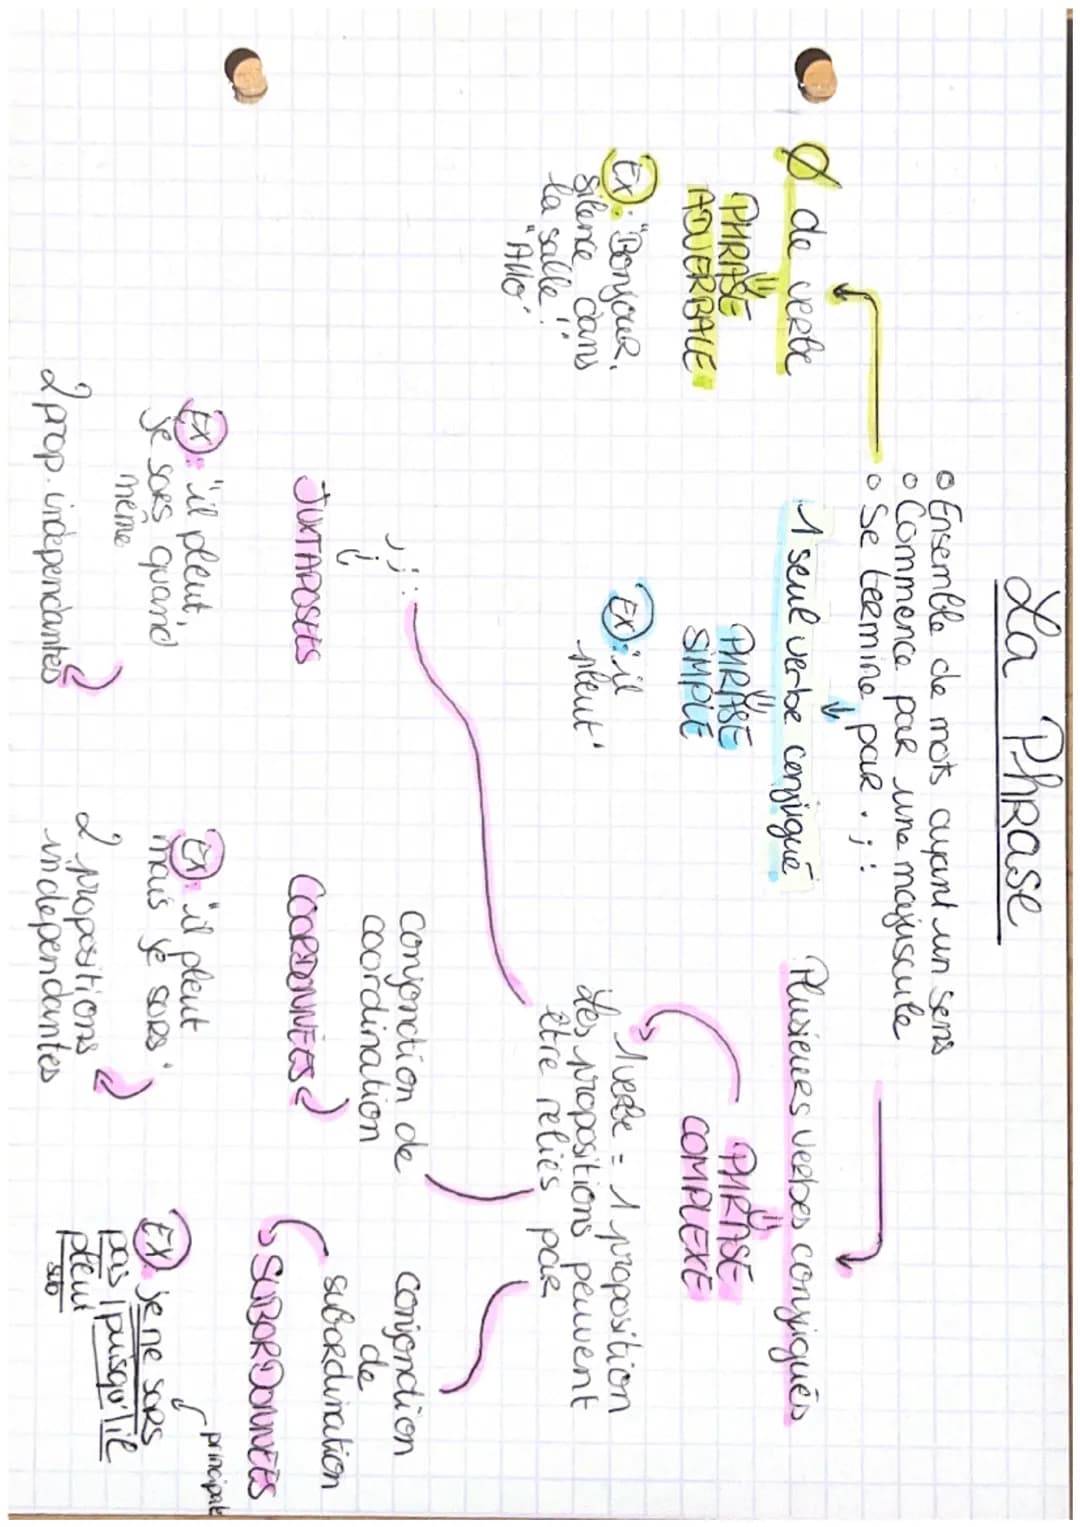 La Phrase
o Ensemble de mots ayant un sens
o Commence par une majuscule
o Se termine par . ; :
Ø de verbe
"
PHRASE
ADVERBALE
Ex : "Bonjour.
silence dans
la salle !"
"Allo".
1 seul verbe conjugué
"
PHRASE
SIMPLE
Ex : il
pleut"
Plusieurs verbes conjugués
"
PHRASE
COMPLEXE
1 verbe = 1 proposition
Les propositions peuvent
être reliés par
, ; :
JUXTAPOSÉES
Ex : "il pleut,
je sors quand
même
2 prop. indépendantes
Conjonction de
coordination
COORDONNÉES
Ex : "il pleut
mais je sors"
2 propositions
indépendantes
conjonction
de
subordination
SUBORDONNÉES
principale
Ex je ne sors
pas | puisqu'il
pleut
sub